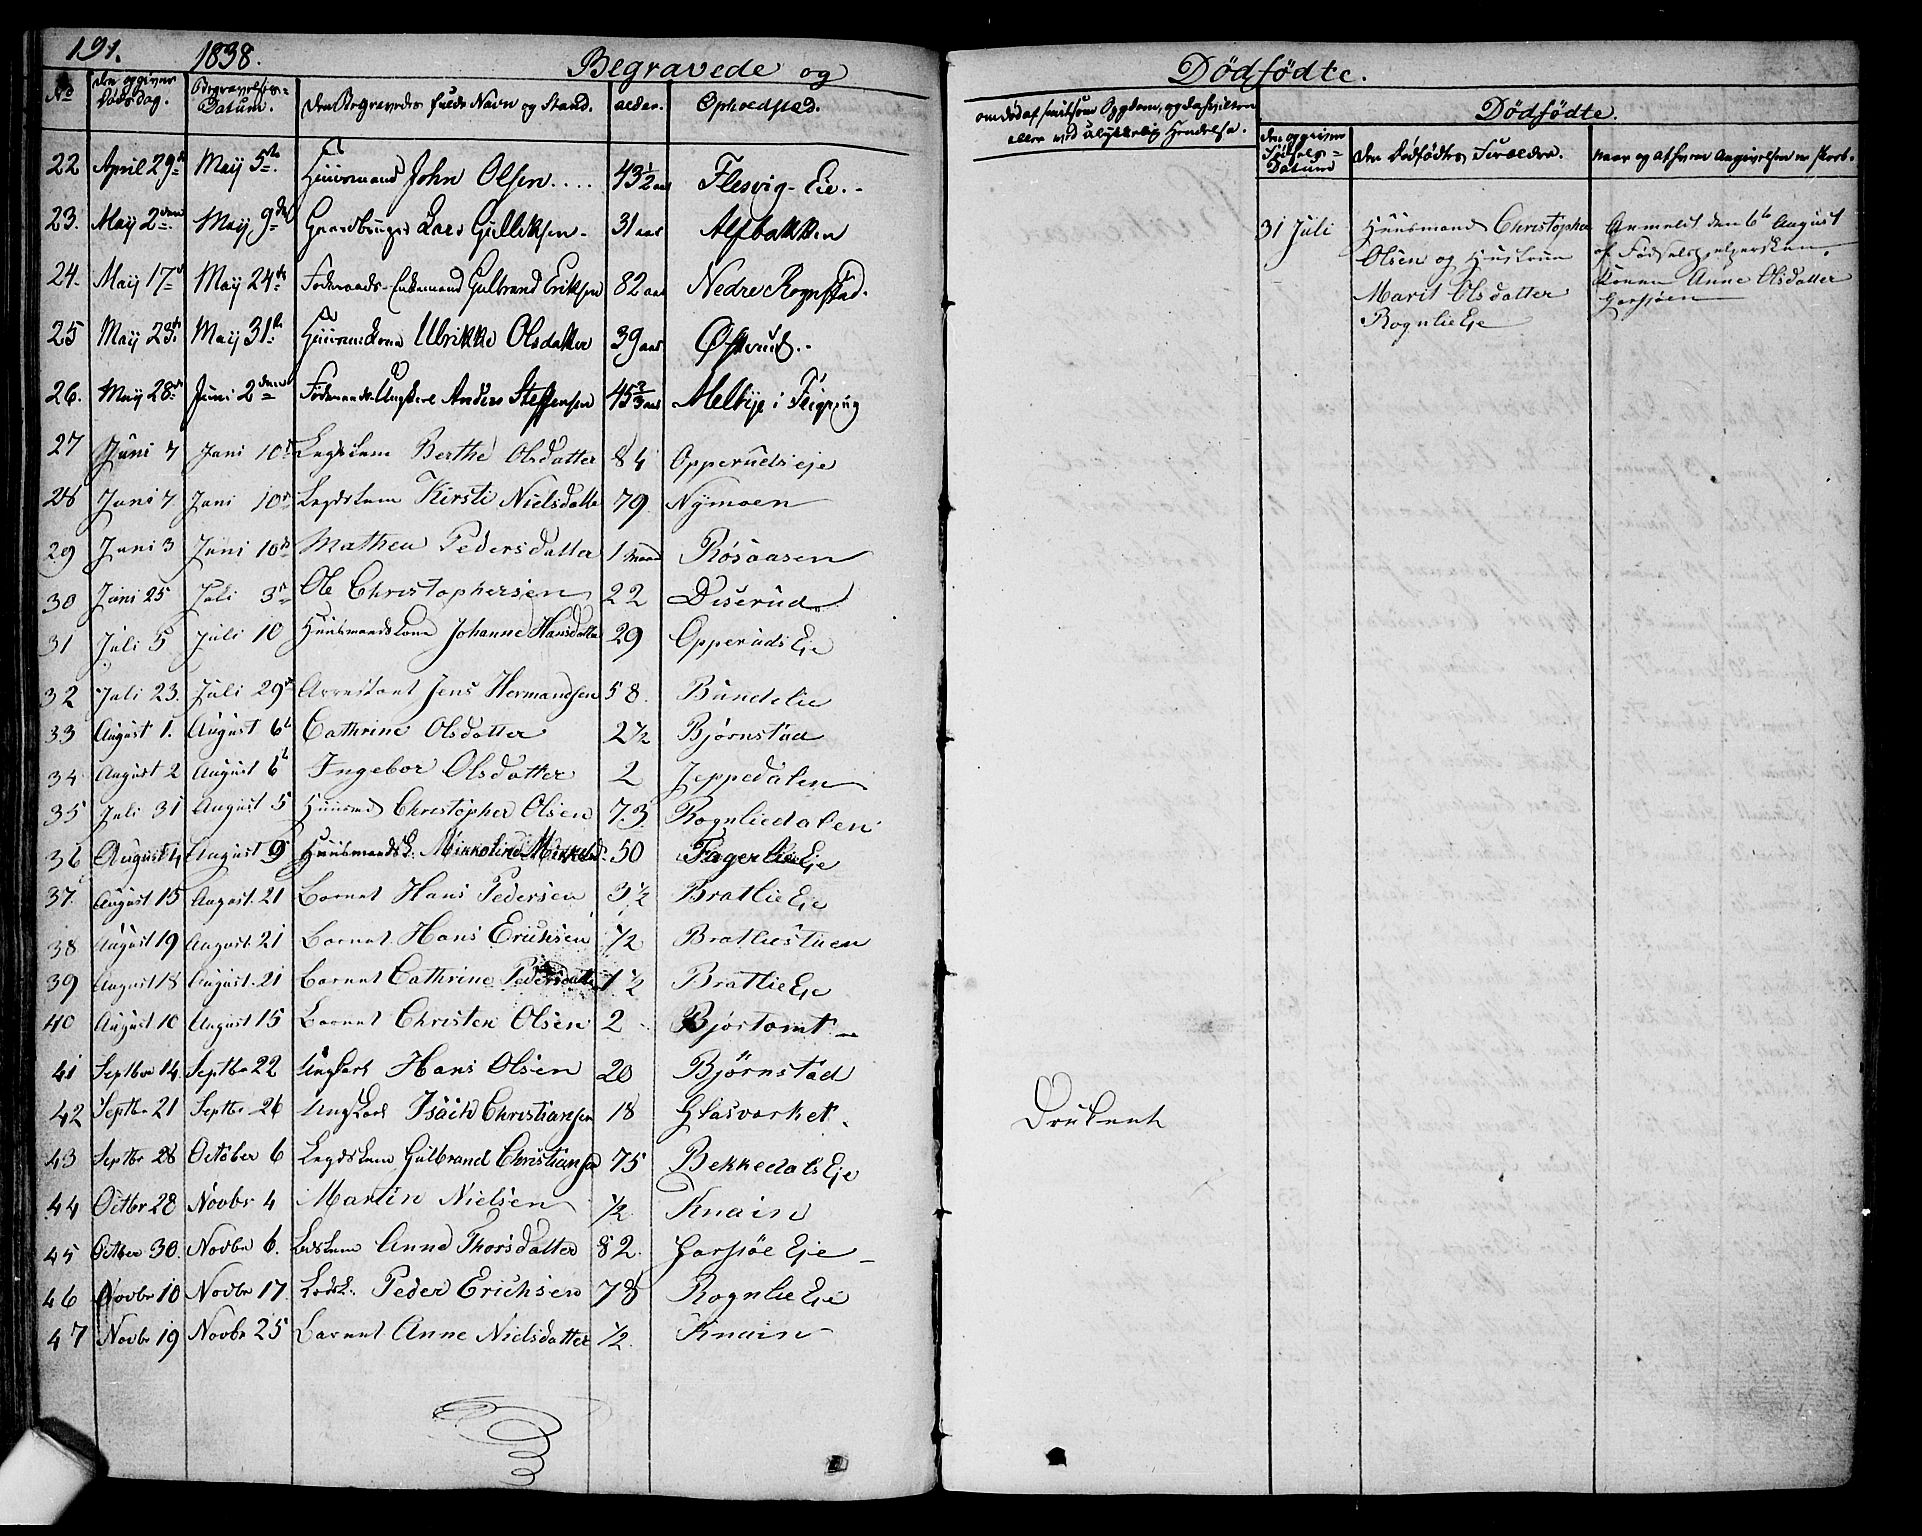 191. 1838. Begravede og
No den opgivne Dødsdag. Begravelses-Datum. den Begravedes fulde Navn og Stand. alder. Opholdssted.
22 April 29de May 5te Huusmand John Olsen.... 43½ aar Flesvig-Eie.-
23. May 2den May 9de Gaardbruger Lars Gulliksen- 31 aar Alfbakken
24. May 17de May 24de Føderaads-Enkemand Gulbrand Eriksen 82 aar Nedre Rognstad.
25 May 23de May 31te Huusmandskone Ulrikke Olsdatter 39 aar Østerud.-
26. May 28de Juni 2den Føderaads Ungkarl Anders Steffensen 45⅔ aar Melbye i Feigring
27 Juni 7 Juni 10de Legdslem Berthe Olsdatter 84 Opperuds eje
28 Juni 7. Juni 10de Legdslem Kirsti Nielsdatte 79 Nÿmoen
29 Juni 3 Juni 10de Mathea Pedersdatter 1 maaned Røsaasen
30 Juni 25 Juli 3de Ole Christophersen 22 Diserud
31 Juli 5 Juli 10 Huusmandskone Johanne Hansdatte 29 Opperuds Eje
32 Juli 23. Juli 29de Arrestant Jens Hermandsen 58. Bundelie
33 August 1. August 6te Cathrine Olsdatter 2½ Bjørnstad
34. August 2 August 6te Ingebor Olsdatter 2 Jeppedalen
35 Juli 31 August 5 Huusmd Christopher Olsen 73. Rognliedalen
36 August 4 August 9 Huusmandsk. Mikkoline Mikkelsd. 50 Fagerlie Eje
37. August 15 August. 21 Barnet Hans Pedersen 3½ Bratlie Eje
38 August 19 August. 21 Barnet Hans Erichsen ½ Bratliestuen
39 August 18 August. 21 Barnet Cathrine Pedersdatte 1½ Bratlie Eje
40 August 10 August 15 Barnet Christen Olsen 2 Bjørtomt
41 Septbr 14 Septbr 22 Ungkarl Hans Olsen 20 Bjørnstad
42 Septbr 21 Septbr 26 Ungkarl Isach Christiansen 18 Glasværket.
43 Septbr 28 October 6 Legdslem Gulbrand Christiansen 75 Bekkedals Eje
44 Octbr 28 Novbr 4 Martin Nielsen ½ Knain
45 Octber 30. Novbr 6. Ledslem Anne Thorsdatter 82. Garsjøe Eje
46 Novbr 10 Novbr 17 Ledsl. Peder Erichsen 78 Rognlie Eje
47 Novbr 19 Novbr 25 Barnet Anne Nielsdatter ½. Knain
Dødfødte.
om død af smitsom Sygdom, og da hvilken
eller ved ulykkelig Hendelse.
Dødfødte.
den opgivne Fødsels-Datum
den Dødfødtes Forældre.
naar og af hvem Angivelsen er skeed.
31 Juli Huusmand Christopher
Olsen og Hustrue
Marit Olsdatter
Rognlie Eje
Anmeldt den 6te August
af Fødselshjelpersken
Konen Anne Olsdatter
Garsjøen
Druknet